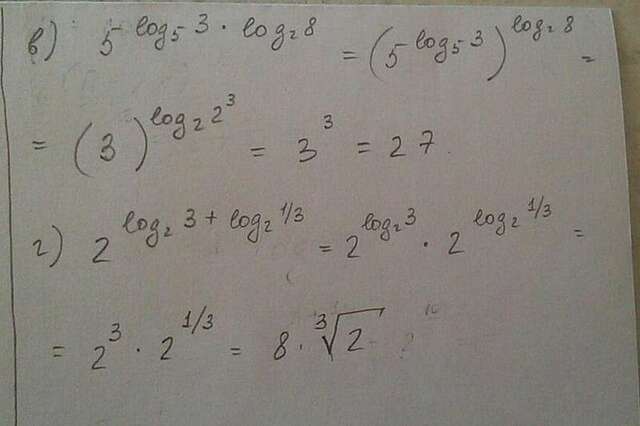 в) 5^(log₅ 3 · log₂ 8) = (5^(log₅ 3))^(log₂ 8) =
= (3)^(log₂ 2³) = 3³ = 27.
г) 2^(log₂ 3 + log₂ 1/3) = 2^(log₂ 3) · 2^(log₂ 1/3) =
= 2³ · 2^(1/3) = 8 · ∛2